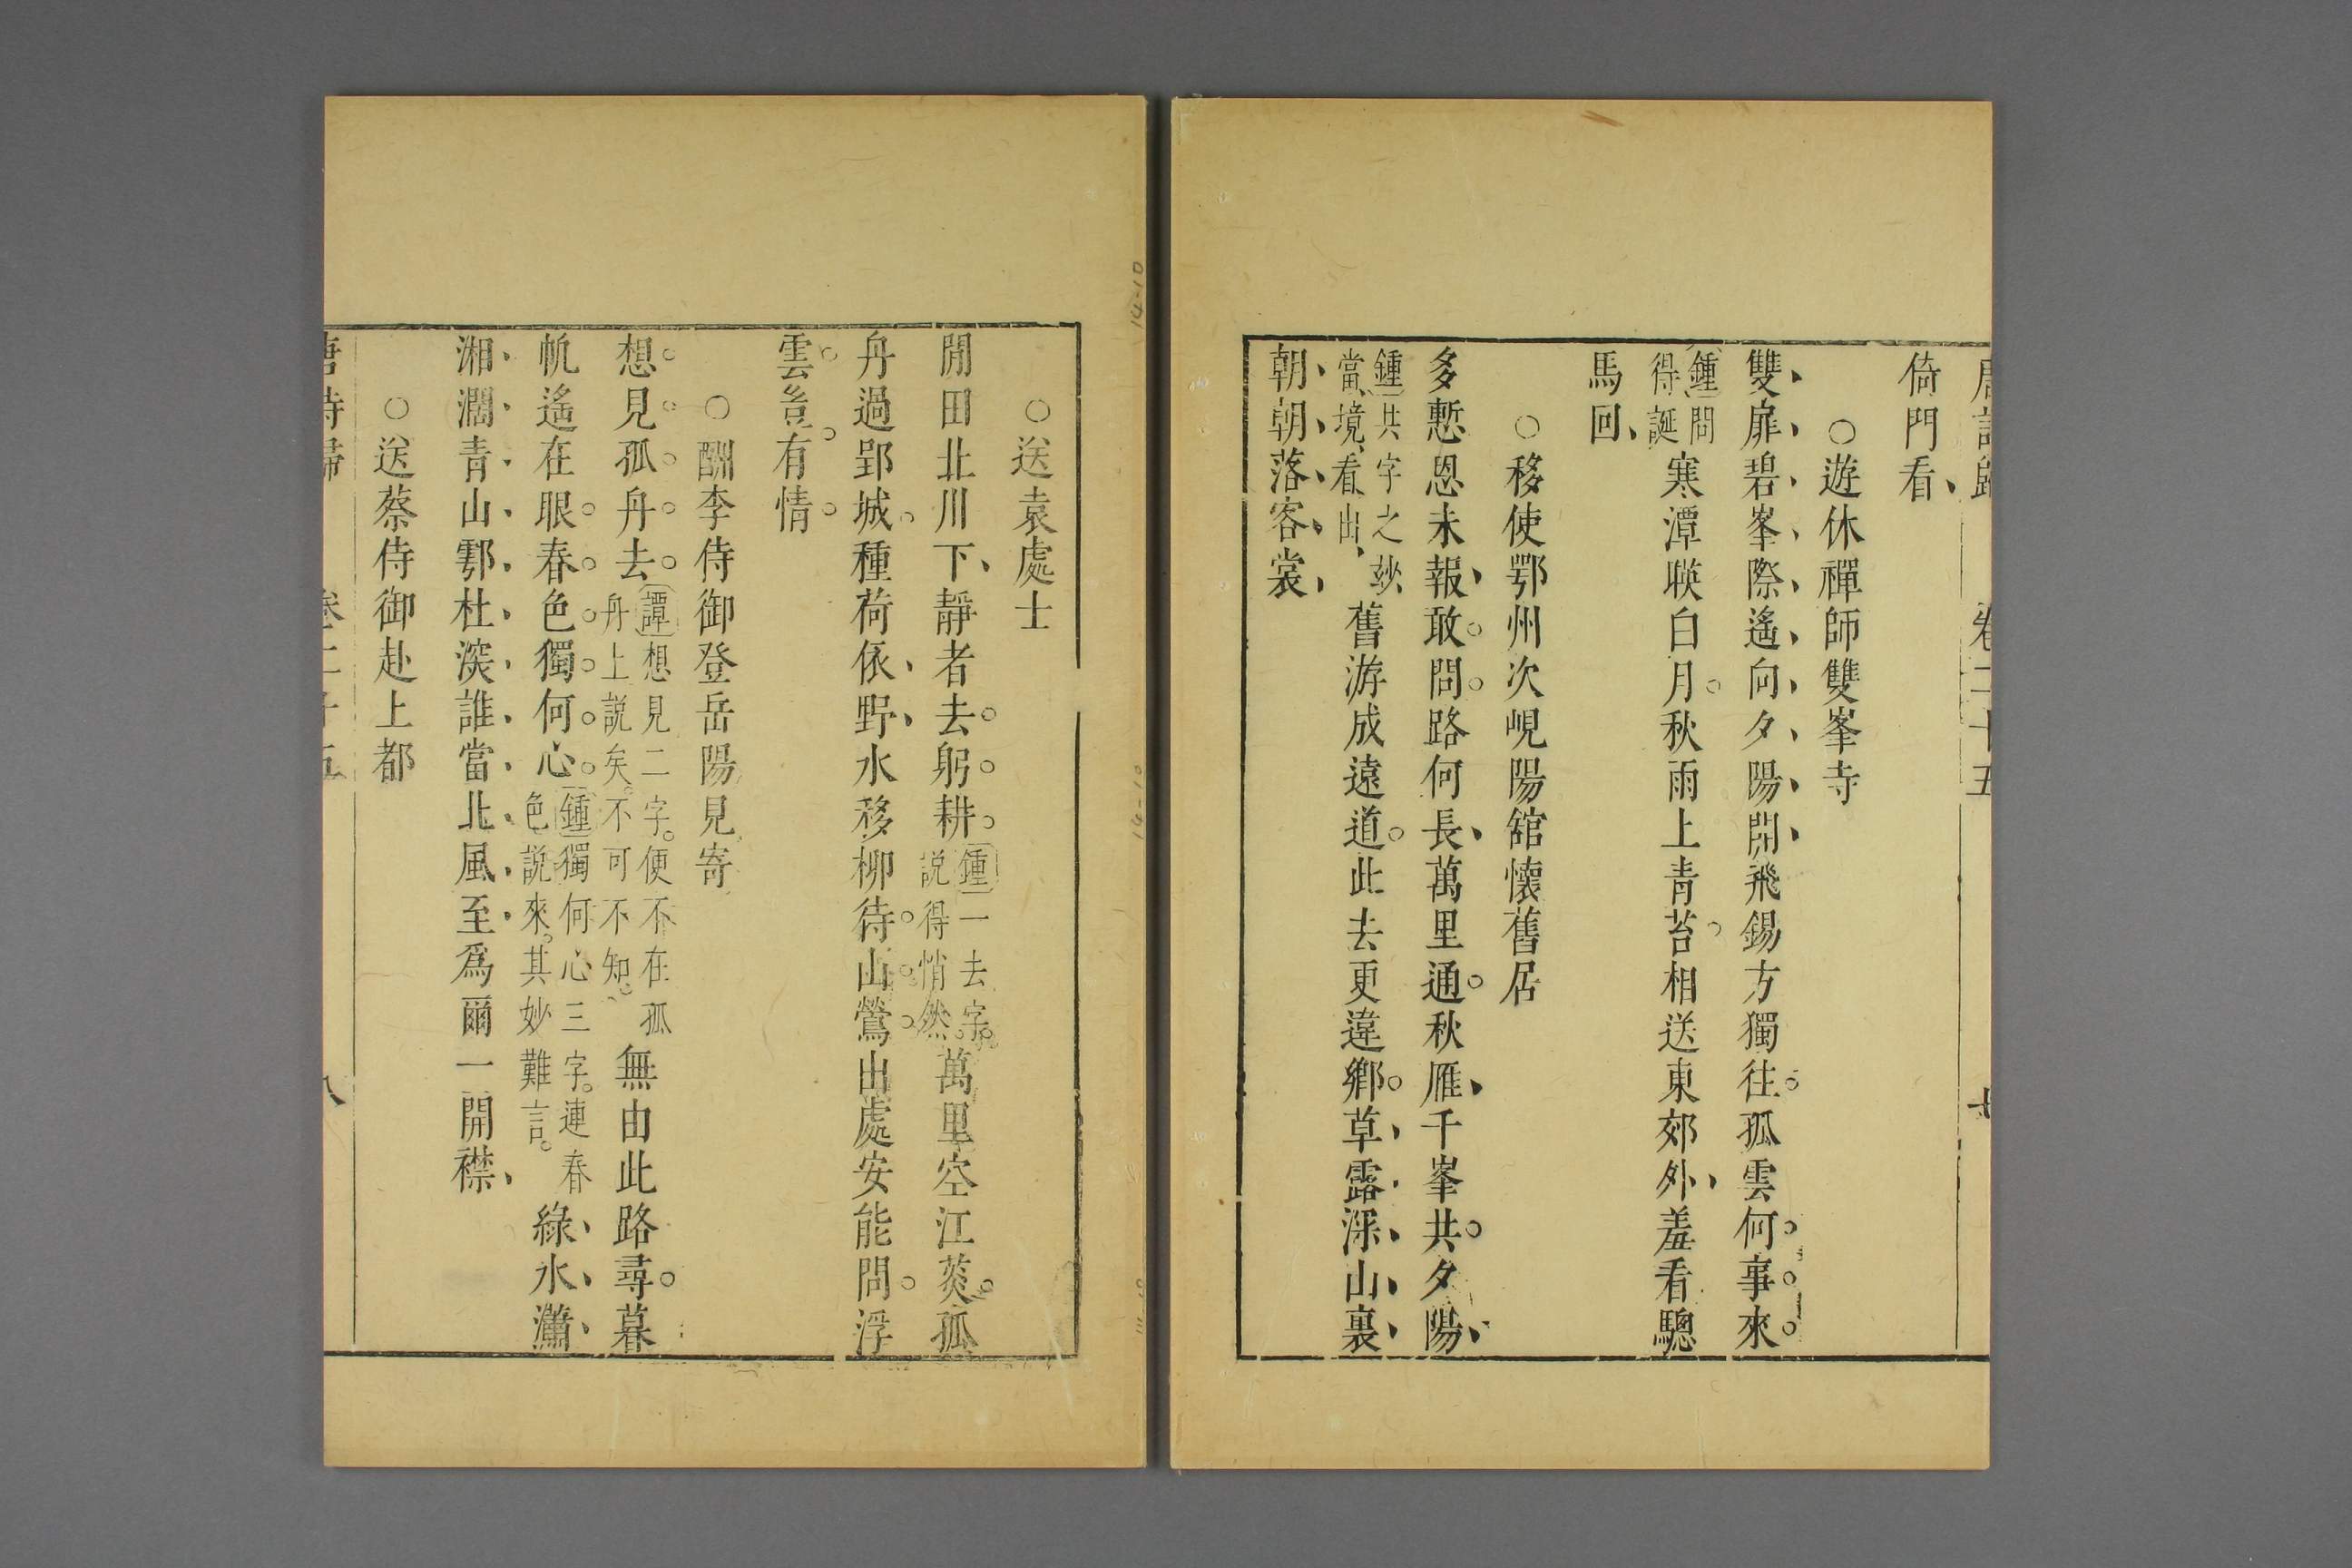 唐詩歸 卷二十五 七
倚門看
○遊休禪師雙峯寺
雙扉碧峯際遙向夕陽開飛錫方獨往孤雲何事來
鍾問得誕寒潭暎白月秋雨上青苔相送東郊外羞看驄
馬回
○移使鄂州次峴陽舘懷舊居
多慙恩未報敢問路何長萬里通秋雁千峯共夕陽
鍾共字之妙當境看出舊游成遠道此去更違鄉草露深山裏
朝朝落客裳
○送袁處士
閒田北川下靜者去躬耕鍾一去字說得悄然萬里空江菼孤
舟過郢城種荷依野水移柳待山鶯出處安能問浮
雲豈有情
○酬李侍御登岳陽見寄
想見孤舟去譚想見二字便不在孤舟上説矣不可不知無由此路尋暮
帆遙在眼春色獨何心鍾獨何心三字連春色説來其妙難言綠水瀟
湘濶青山鄠杜深誰當北風至爲爾一開襟
○送蔡侍御赴上都
唐詩歸 卷二十五 八
14-10
14-10